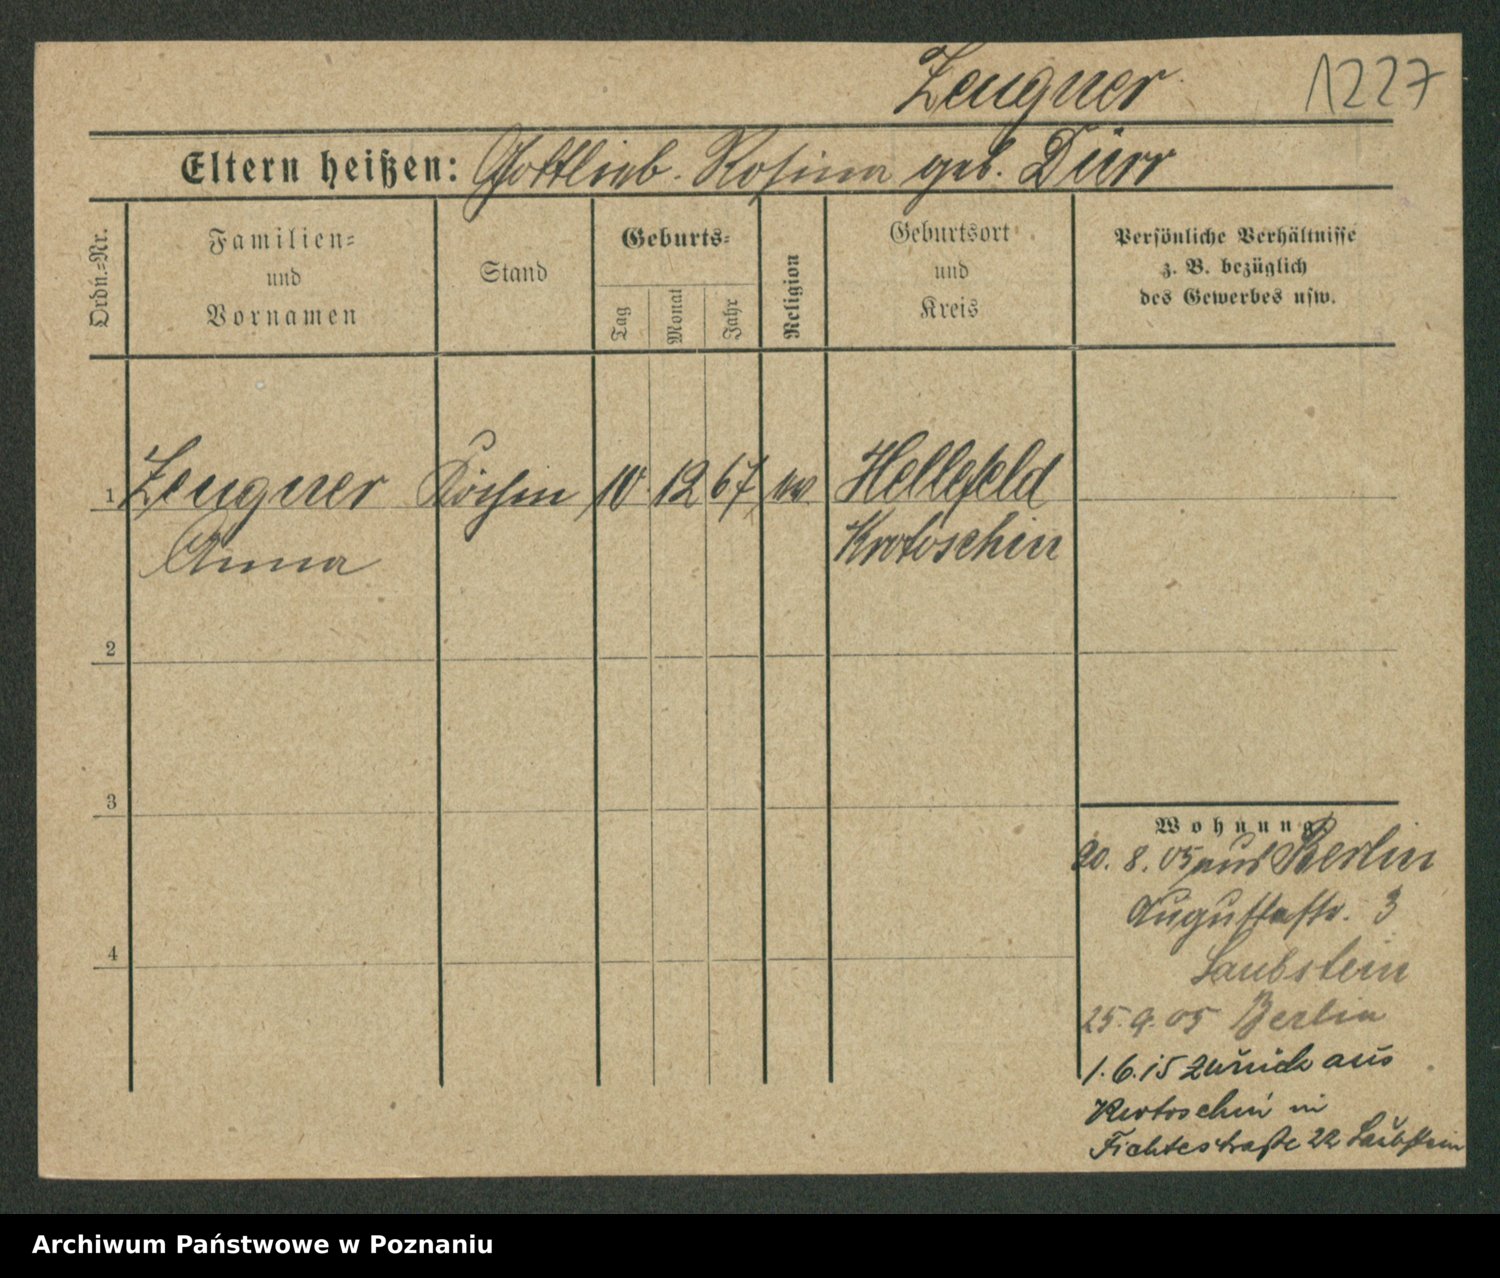 Zeugner 1227
Eltern heißen: Gottlieb. Rosina geb. Dürr
Ordn.=Nr.
Familien=
und
Vornamen
Stand
Geburts=
Tag Monat Jahr
Religion
Geburtsort
und
Kreis
Persönliche Verhältnisse
z. B. bezüglich
des Gewerbes usw.
1 Zeugner Köchin 10 12 67 ev Hellefeld
Anna Krotoschin
2
3
4
Wohnung
20. 8. 05 aus Berlin
Augustastr. 3
Laubstein
25. 9. 05 Berlin
1. 6. 15 zurück aus
Krotoschin in
Fichtestraße 22 Laubstein
Archiwum Państwowe w Poznaniu